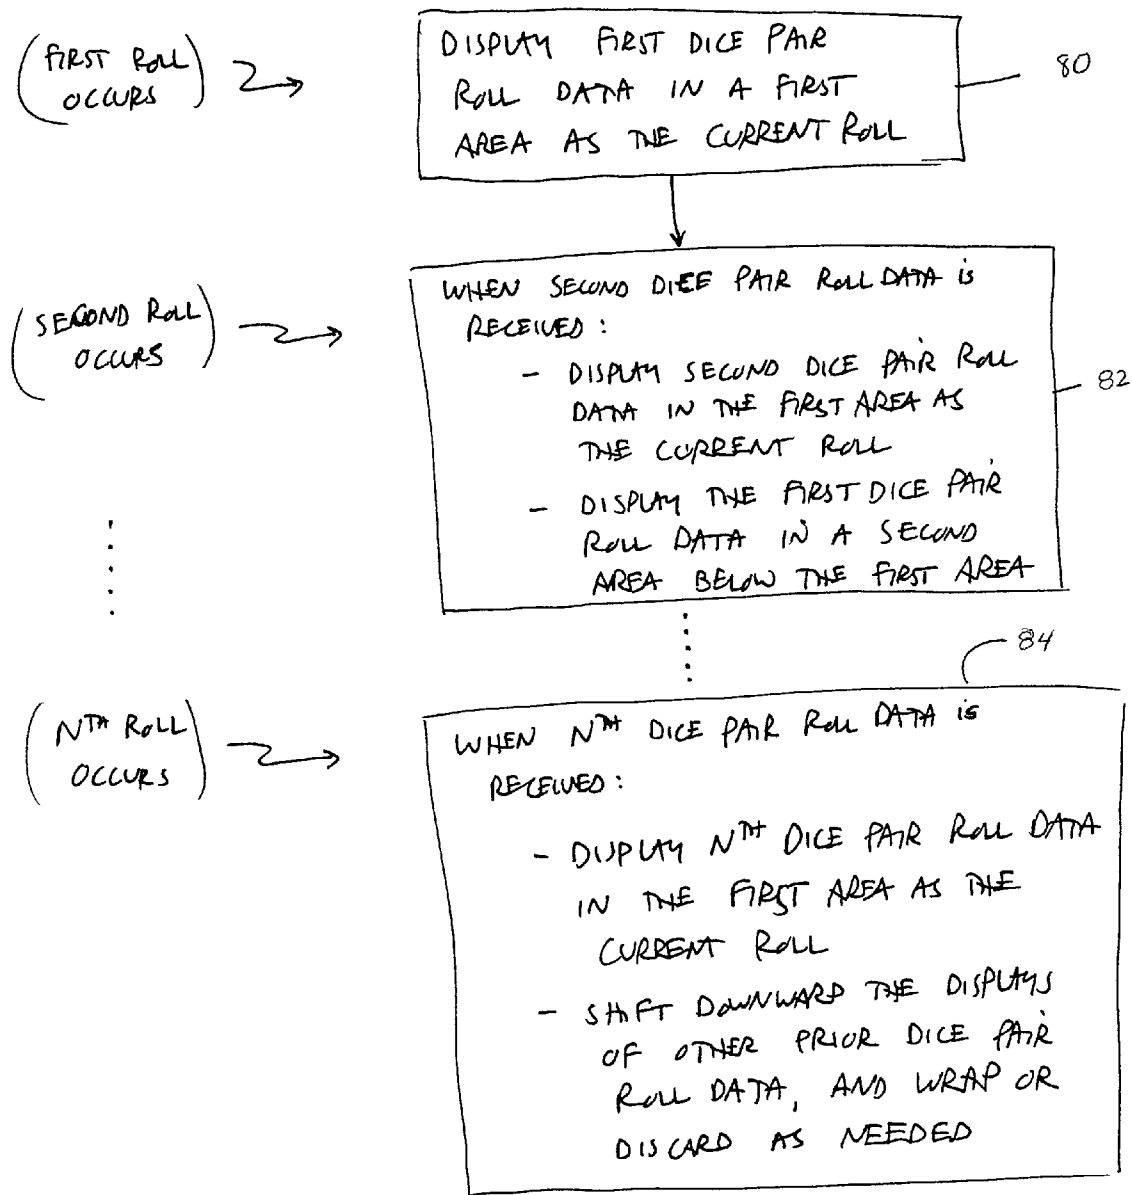 (FIRST ROLL
OCCURS)
DISPLAY FIRST DICE PAIR
ROLL DATA IN A FIRST
AREA AS THE CURRENT ROLL
80
(SECOND ROLL
OCCURS)
WHEN SECOND DICE PAIR ROLL DATA IS
RECEIVED:
- DISPLAY SECOND DICE PAIR ROLL
DATA IN THE FIRST AREA AS
THE CURRENT ROLL
- DISPLAY THE FIRST DICE PAIR
ROLL DATA IN A SECOND
AREA BELOW THE FIRST AREA
82
84
(NTH ROLL
OCCURS)
WHEN NTH DICE PAIR ROLL DATA IS
RECEIVED:
- DISPLAY NTH DICE PAIR ROLL DATA
IN THE FIRST AREA AS THE
CURRENT ROLL
- SHIFT DOWNWARD THE DISPLAYS
OF OTHER PRIOR DICE PAIR
ROLL DATA, AND WRAP OR
DISCARD AS NEEDED